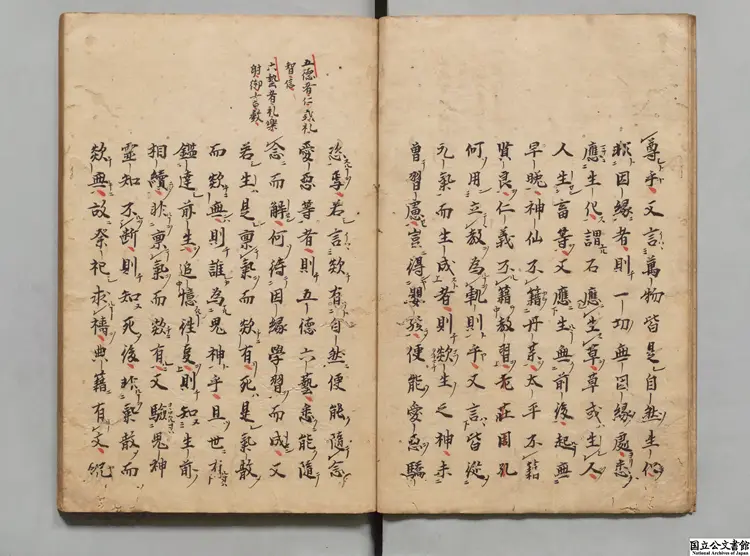 尊乎又言萬物皆是自然生化
非因緣者則一切無因緣處悉
應生化謂石應生草草或生人
人生畜等又應生無前後起無
早晚神仙不藉丹藥太平不藉
賢良仁義不藉教習老莊周孔
何用立教為軌則乎又言皆從
元氣而生成者則欻生之神未
曾習慮豈得嬰孩便能愛惡驕
五德者仁義礼
智信
六藝者礼樂
射御書數
恣焉若言欻有自然便能隨念
愛惡等者則五德六藝悉能隨
念而解何待因緣學習而成又
若生是稟氣而欻有死是氣散
而欻無則誰為鬼神乎且世有
鑑達前生追憶往事則知生前
相續非稟氣而欻有又驗鬼神
靈知不斷則知死後非氣散而
欻無故祭祀求禱典籍有文況
国立公文書館
National Archives of Japan